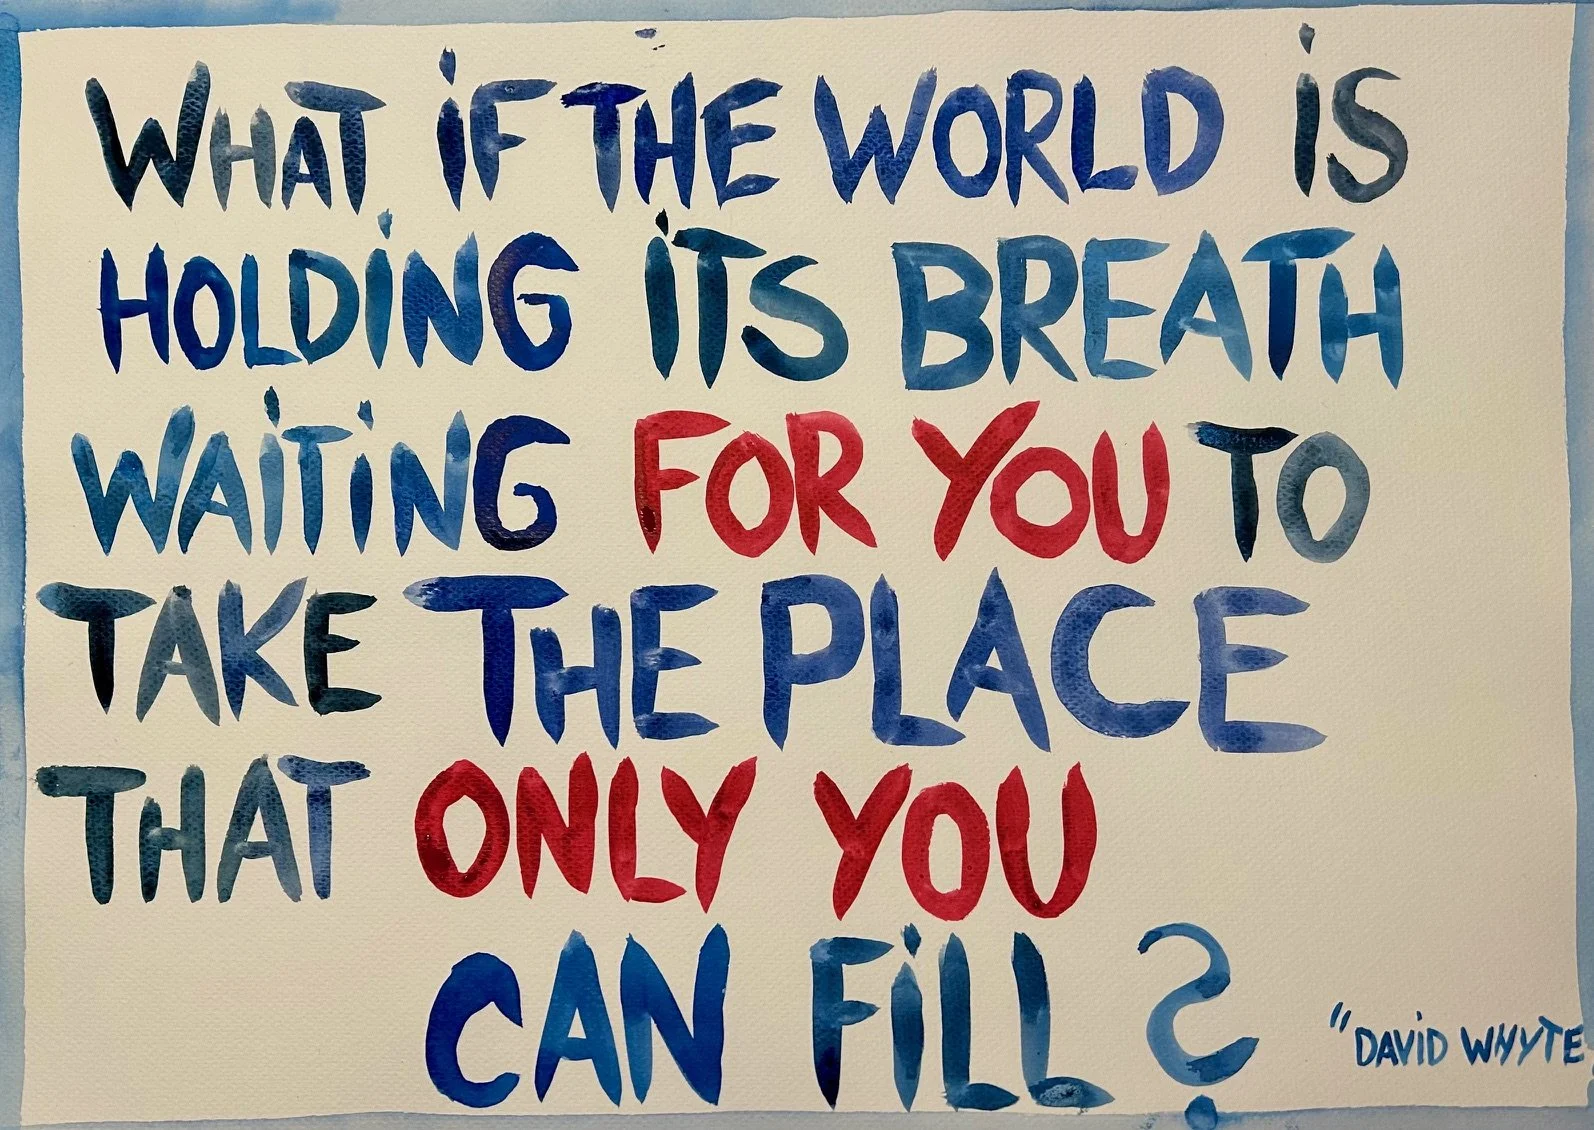 WHAT iF THE WORLD iS
HOLDiNG iTS BREATH
WAiTiNG FOR YOU TO
TAKE THE PLACE
THAT ONLY YOU
CAN FiLL?
"DAViD WHYTE